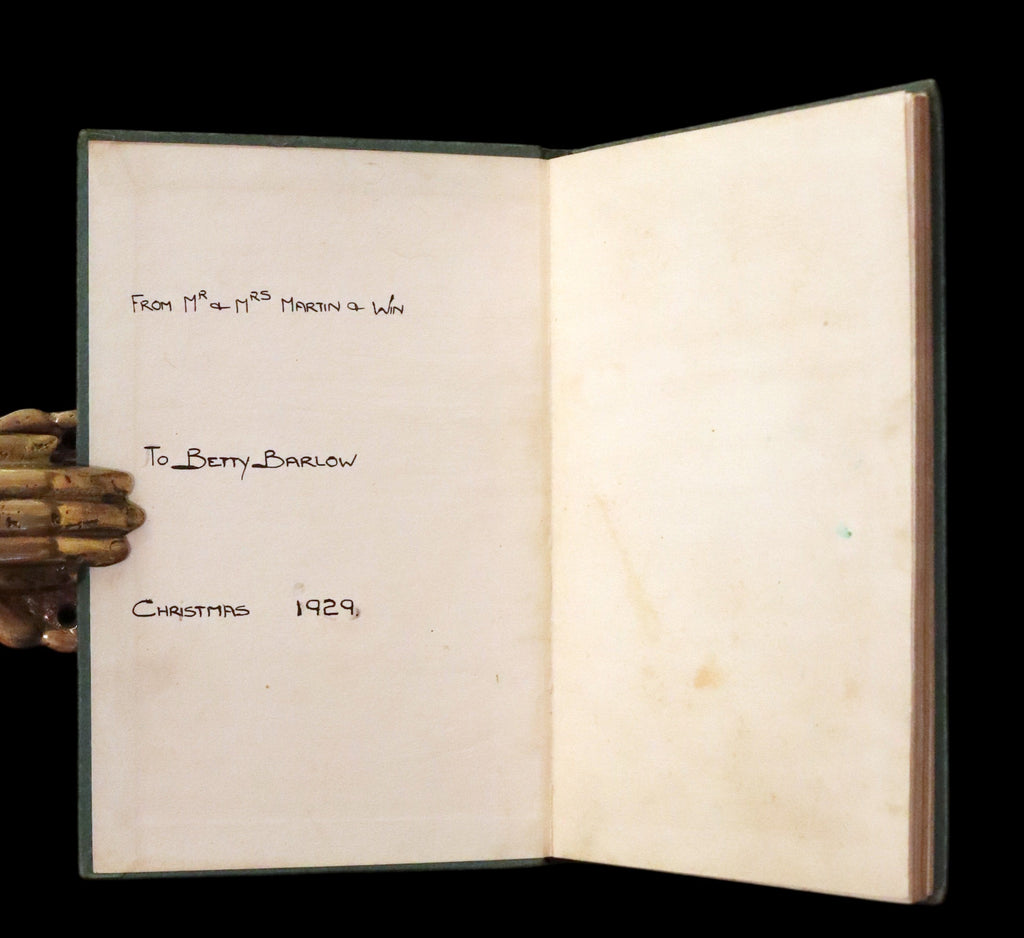 FROM MR & MRS MARTIN & WIN
TO BETTY BARLOW
CHRISTMAS 1929.